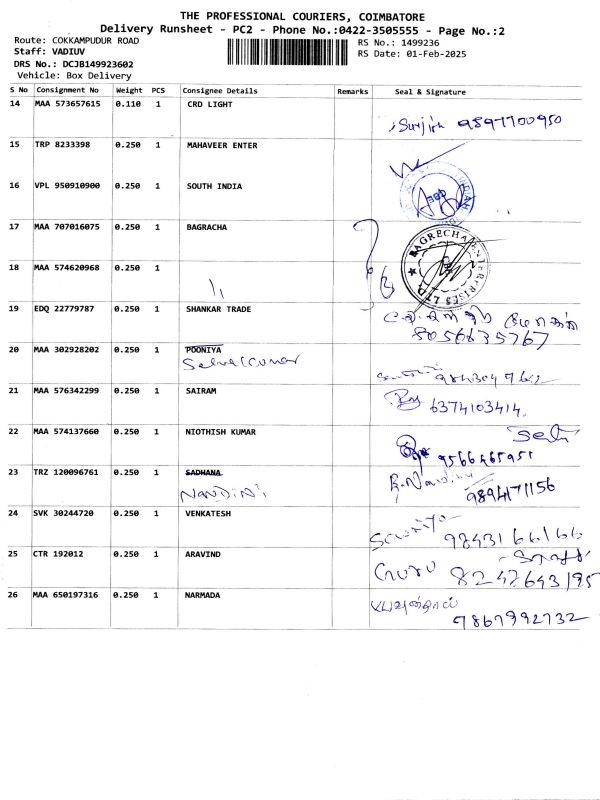 THE PROFESSIONAL COURIERS, COIMBATORE
Delivery Runsheet - PC2 - Phone No.:0422-3505555 - Page No.:2
Route: COKKAMPUDUR ROAD RS No.: 1499236
Staff: VADIUV RS Date: 01-Feb-2025
DRS No.: DCJB149923602
Vehicle: Box Delivery
S No Consignment No Weight PCS Consignee Details Remarks Seal & Signature
14 MAA 573657615 0.110 1 CRD LIGHT
9897700950
15 TRP 8233398 0.250 1 MAHAVEER ENTER
16 VPL 950910900 0.250 1 SOUTH INDIA
17 MAA 707016075 0.250 1 BAGRACHA
BAGRECHA ENTERPRISES LTD
18 MAA 574620968 0.250 1
19 EDQ 22779787 0.250 1 SHANKAR TRADE
8056635767
20 MAA 302928202 0.250 1 POONIYA
Selvakumar
21 MAA 576342299 0.250 1 SAIRAM
6374103414
22 MAA 574137660 0.250 1 NIOTHISH KUMAR
9566465951
23 TRZ 120096761 0.250 1 SADHANA
NANDINI R. Nandini
9894171156
24 SVK 30244720 0.250 1 VENKATESH
9843166166
25 CTR 192012 0.250 1 ARAVIND
Guru 8242643195
26 MAA 650197316 0.250 1 NARMADA
7867992732